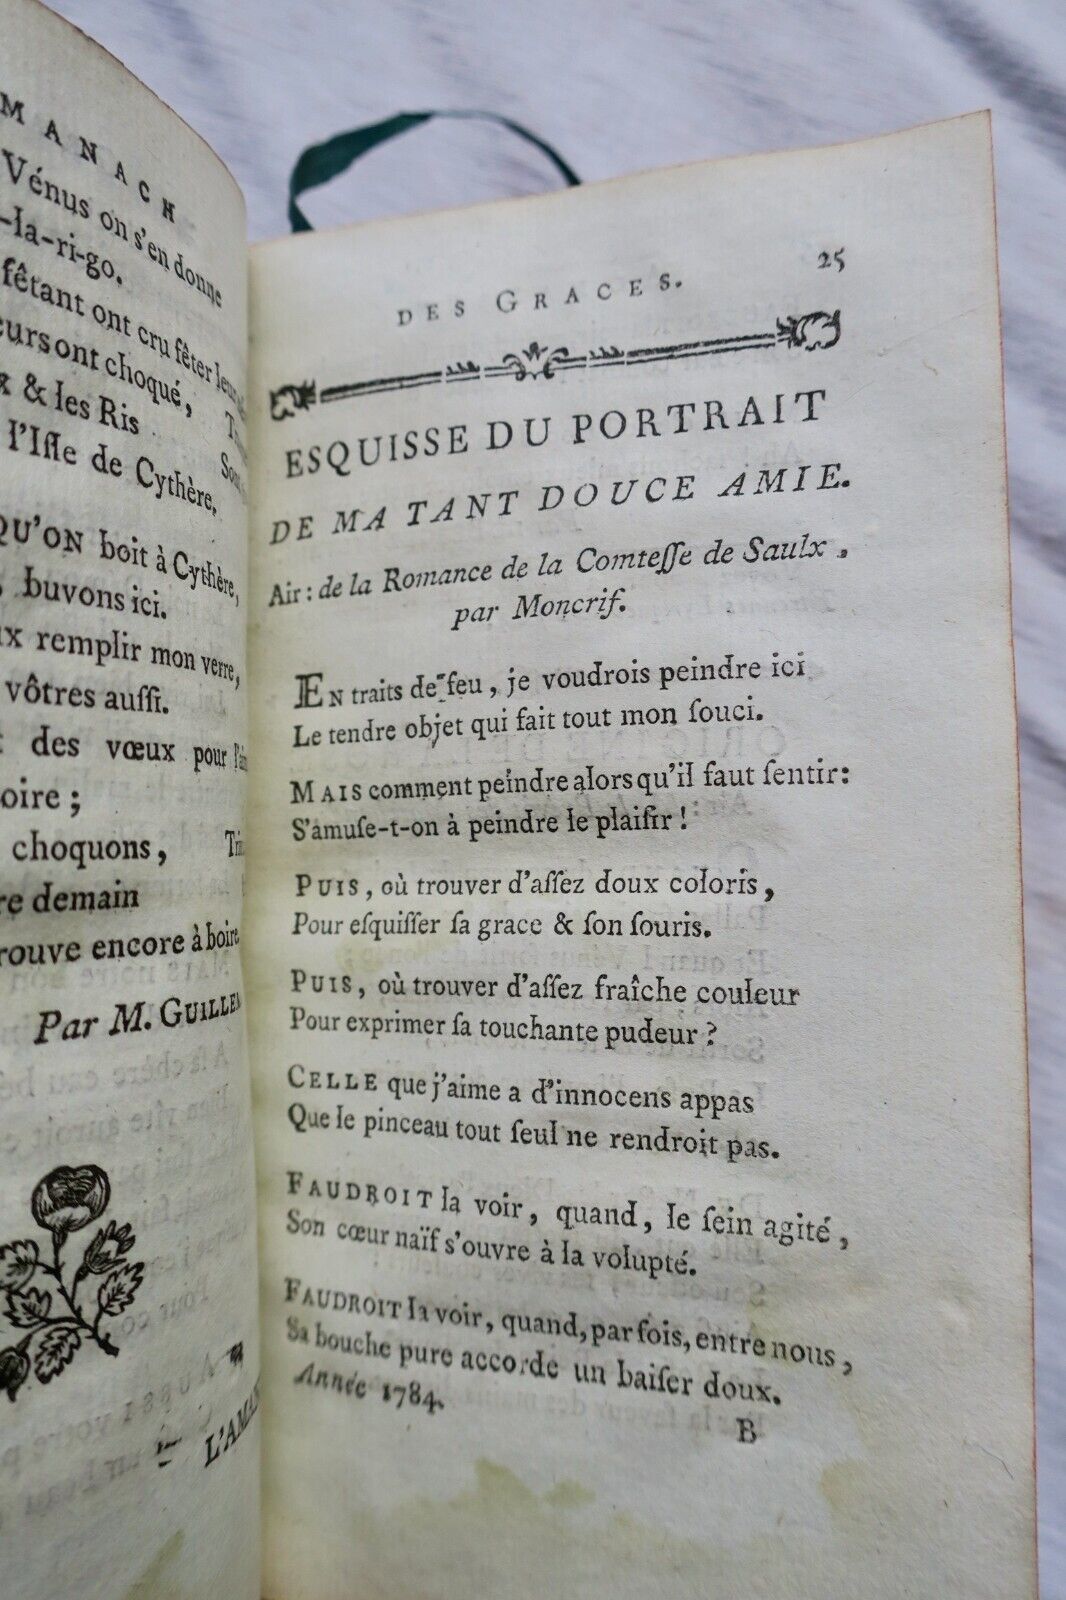 MANACH
Vénus on s'en donne
-la-ri-go.
fêtant ont cru fêter leur
sont choqué,
& les Ris
l'Iſle de Cythère.
QU'ON boit à Cythère,
, buvons ici.
remplir mon verre,
vôtres auſſi.
des vœux pour
oire;
choquons,
demain
rouve encore à boire.
Par M. GUILLE
L'AMAN
DES GRACES. 25
ESQUISSE DU PORTRAIT
DE MA TANT DOUCE AMIE.
Air: de la Romance de la Comteſſe de Saulx,
par Moncrif.
EN traits de feu, je voudrois peindre ici
Le tendre objet qui fait tout mon ſouci.
MAIS comment peindre alors qu'il faut ſentir:
S'amuſe-t-on à peindre le plaiſir!
PUIS, où trouver d'aſſez doux coloris,
Pour eſquiſſer ſa grace & ſon ſouris.
PUIS, où trouver d'aſſez fraîche couleur
Pour exprimer ſa touchante pudeur?
CELLE que j'aime a d'innocens appas
Que le pinceau tout ſeul ne rendroit pas.
FAUDROIT la voir, quand, le ſein agité,
Son cœur naïf s'ouvre à la volupté.
FAUDROIT la voir, quand, par fois, entre nous,
Sa bouche pure accorde un baiſer doux.
Année 1784.
B